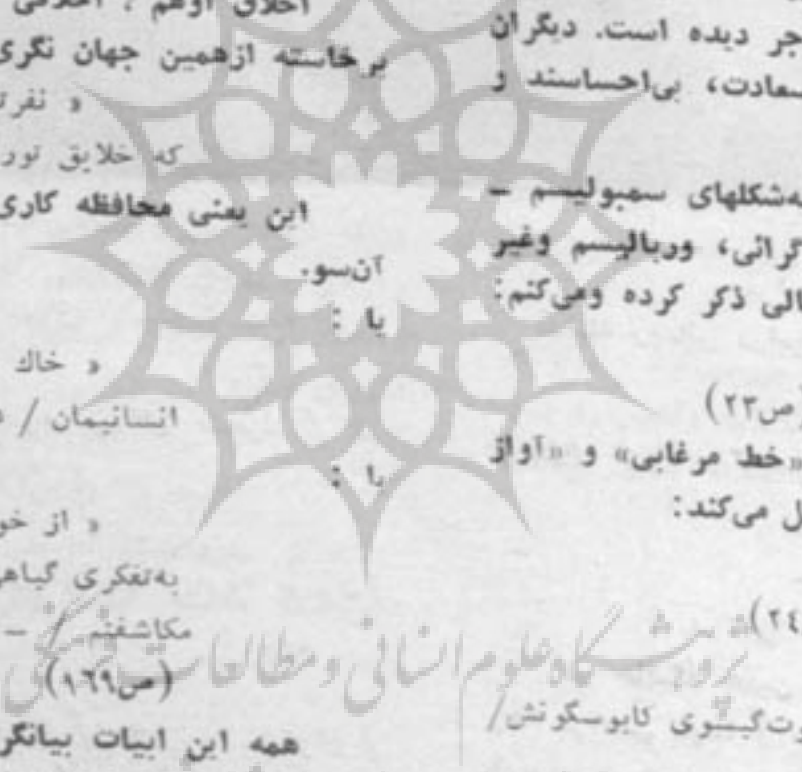 جر دیده است. دیگران
سعادت، بی‌احساسند و
به‌شکلهای سمبولیسم –
گرائی، وریالیسم وغیر
الی ذکر کرده ومی‌کنم:
(ص۲۳
«خط مرغابی» و «آواز
ل می‌کند:
(۲۴
کابوسگونش/
اخلاق اوهم ، اخلاقی
برخاسته ازهمین جهان نگری
« نفرت
که خلایق نور
این یعنی محافظه کاری
آن‌سو.
یا :
« خاك
انسانیمان /
یا :
« از خو
به‌تفکری گیاهی
مکاشفتم / –
(ص۱۶۹)
همه این ابیات بیانگر
پژوهشگاه علوم انسانی و مطالعات فرهنگی